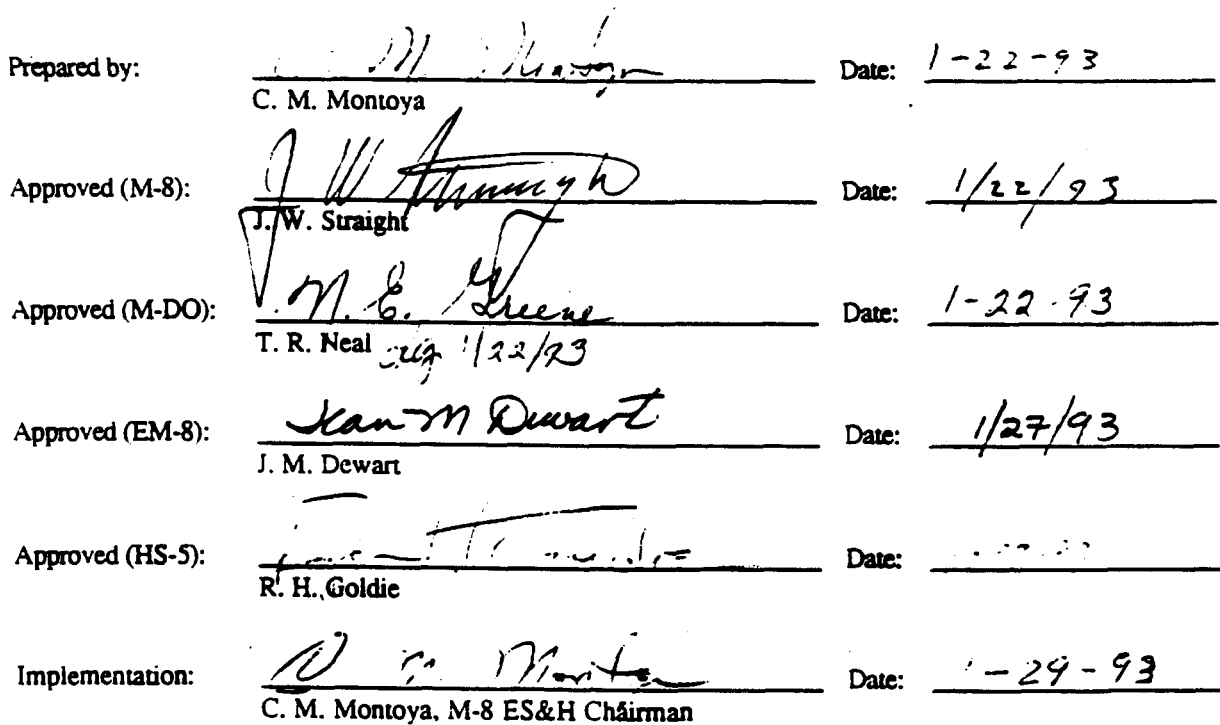 Prepared by: Date: 1-22-93
C. M. Montoya
Approved (M-8): J W Date: 1/22/93
J. W. Straight
Approved (M-DO): N. E. Greene Date: 1-22-93
T. R. Neal 1/22/93
Approved (EM-8): Jean M Dewart Date: 1/27/93
J. M. Dewart
Approved (HS-5): Date:
R. H. Goldie
Implementation: Date: 1-29-93
C. M. Montoya, M-8 ES&H Chairman